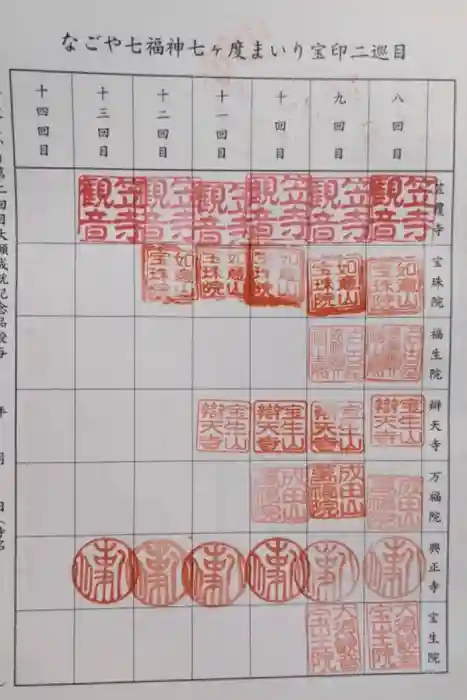 なごや七福神七ヶ度まいり宝印二巡目
八回目
九回目
十回目
十一回目
十二回目
十三回目
十四回目
笠覆寺
笠寺観音
笠寺観音
笠寺観音
笠寺観音
笠寺観音
笠寺観音
宝珠院
如意山宝珠院
如意山宝珠院
如意山宝珠院
如意山宝珠院
如意山宝珠院
福生院
辯天寺
金生山辯天寺
金生山辯天寺
金生山辯天寺
金生山辯天寺
万福院
成田山萬福院
成田山萬福院
成田山萬福院
興正寺
宝生院
大須観音宝生院
大須観音宝生院
第二回目大願成就記念品授与
年
月
日